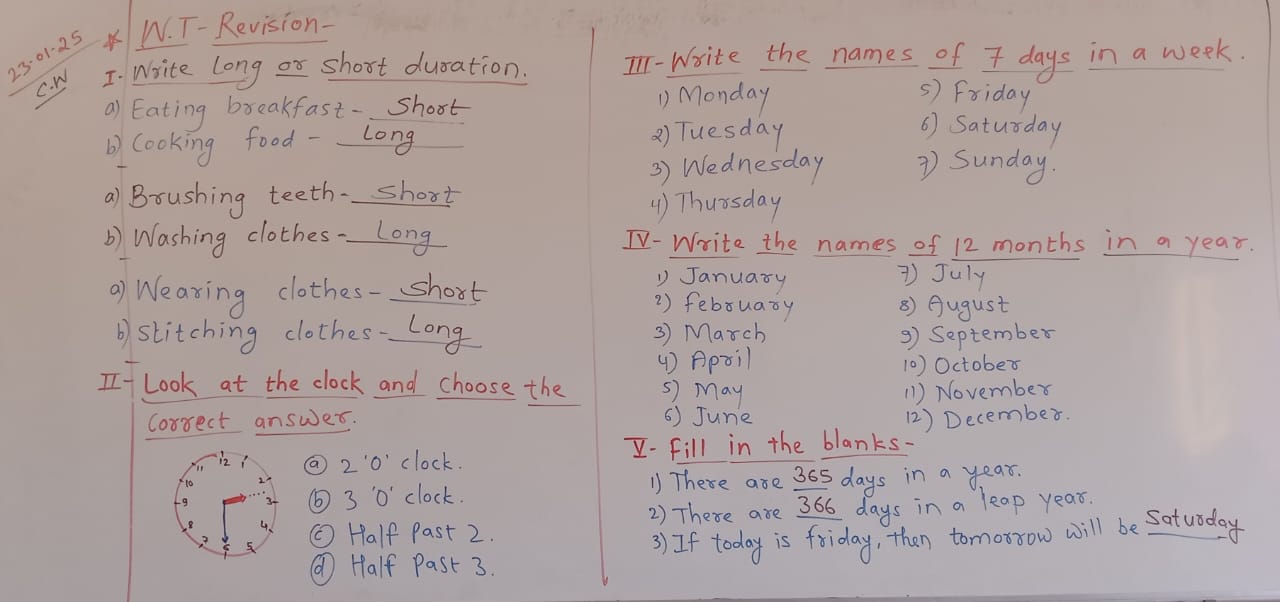 23-01-25
C.W
* W.T - Revision -
I - Write Long or Short duration.
a) Eating breakfast - Short
b) Cooking food - Long
a) Brushing teeth - Short
b) Washing clothes - Long
a) Wearing clothes - Short
b) Stitching clothes - Long
II - Look at the clock and choose the
correct answer.
12 1 2 3 4 5 6 7 8 9 10 11
a 2 'O' clock.
b 3 'O' clock.
c Half Past 2.
d Half Past 3.
III - Write the names of 7 days in a week.
1) Monday
2) Tuesday
3) Wednesday
4) Thursday
5) Friday
6) Saturday
7) Sunday.
IV - Write the names of 12 months in a year.
1) January
2) February
3) March
4) April
5) May
6) June
7) July
8) August
9) September
10) October
11) November
12) December.
V - Fill in the blanks -
1) There are 365 days in a year.
2) There are 366 days in a leap year.
3) If today is friday, then tomorrow will be Saturday